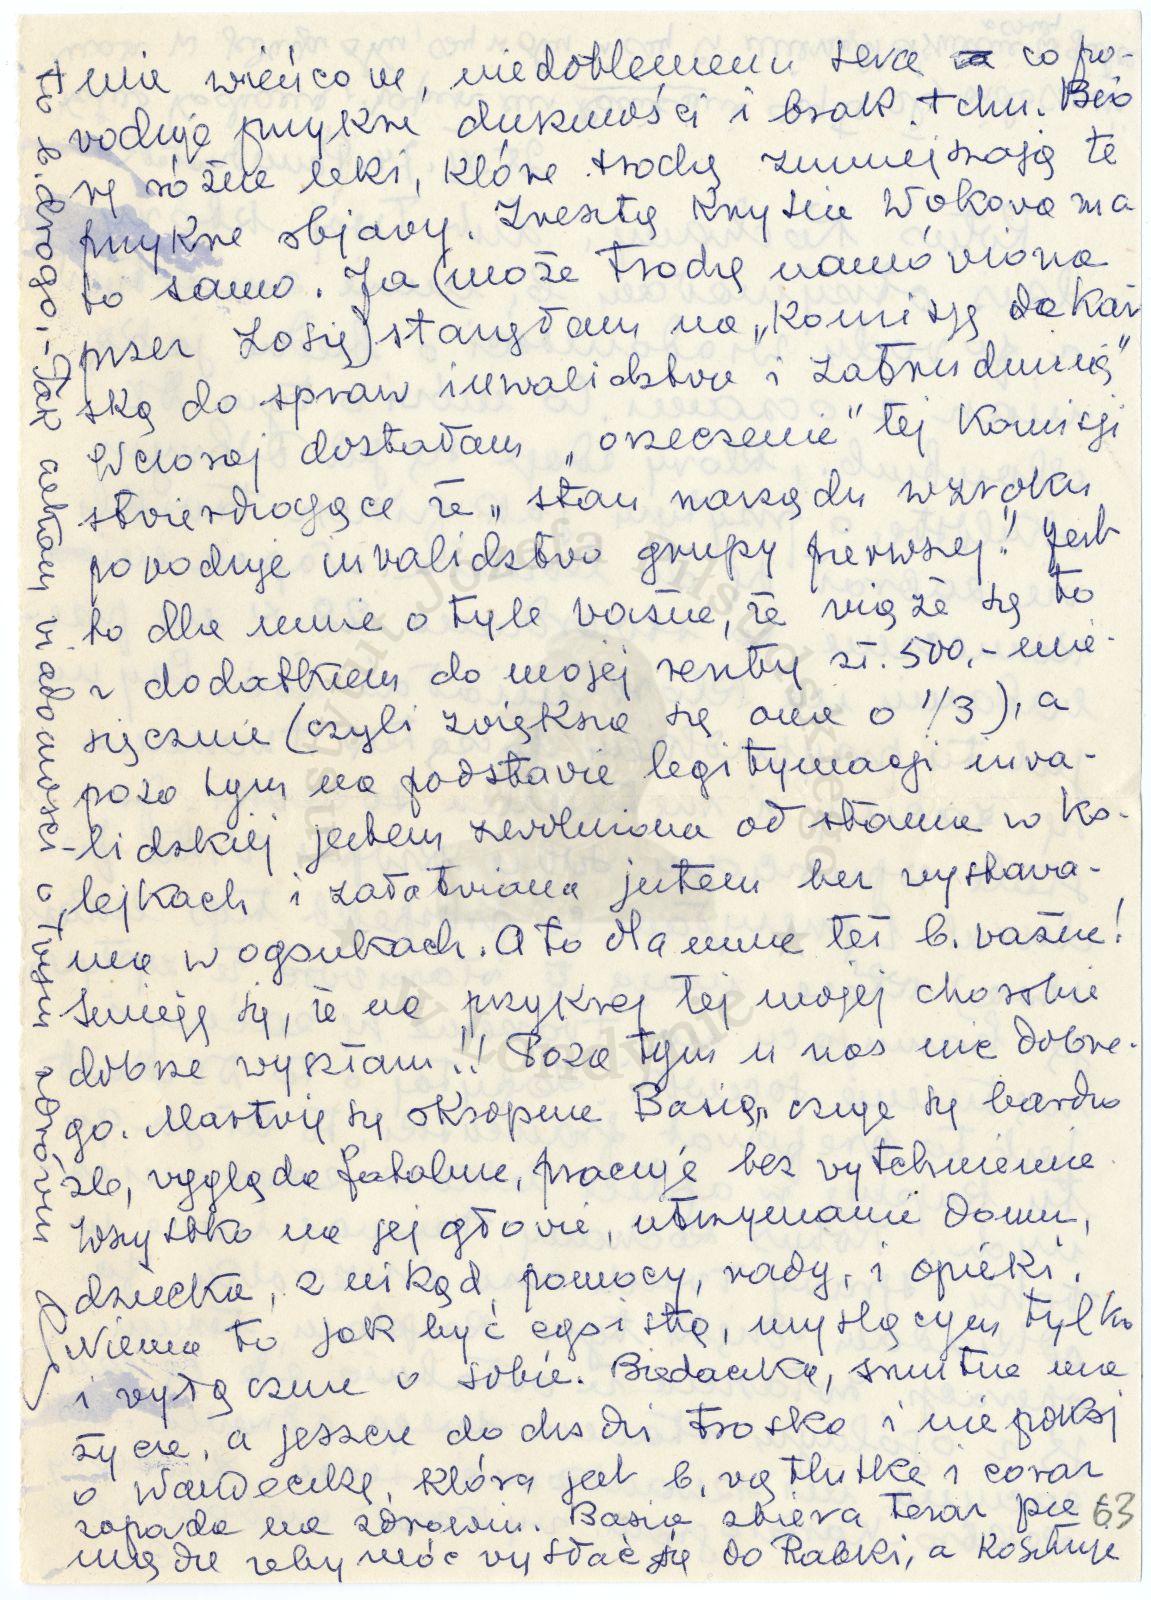 nie wieńcowe, niedotlenieniu serca co po-
woduje przykre duszności i brak tchu. Bio
rę różne leki, które trochę zmniejszają te
przykre objawy. Zresztą Krysia Wokowa ma
to samo. Ja (może trochę namówiona
przez Zosię) stanęłam na „Komisję Lekar
ską do spraw inwalidztwa i zatrudnienia"
Wczoraj dostałam „orzeczenie" tej Komisji
stwierdzające że „stan narządu wzroku
powoduje inwalidztwo grupy pierwszej"! Jest
to dla mnie o tyle ważne, że wiąże się to
z dodatkiem do mojej renty zł. 500,- mie-
sięcznie (czyli zwiększa się ona o 1/3), a
poza tym na podstawie legitymacji inwa-
lidzkiej jestem zwolniona od stania w ko-
lejkach i załatwiana jestem bez wystawa-
nia w ogonkach. A to dla mnie też b. ważne!
Śmieję się, że na przykrej tej mojej chorobie
dobrze wyszłam!! Poza tym u nas nic dobre-
go. Martwię się okropnie Basią, czuje się bardzo
źle, wygląda fatalnie, pracuje bez wytchnienia.
Wszystko na jej głowie, utrzymanie domu,
dziecka, znikąd pomocy, rady, i opieki.
Niema to jak być egoistą, myślącym tylko
i wyłącznie o sobie. Biedaczka, smutne ma
życie, a jeszcze dochodzi troska i niepokój
o Waneczkę, która jest b. wątlutka i coraz
zapada na zdrowiu. Basia zbiera teraz pie
niądze żeby móc wysłać ją do Rabki, a kosztuje
63
to b. drogo. - Tak czekam wiadomości o Twym zdrowiu
Instytut Józefa Piłsudskiego
w Londynie